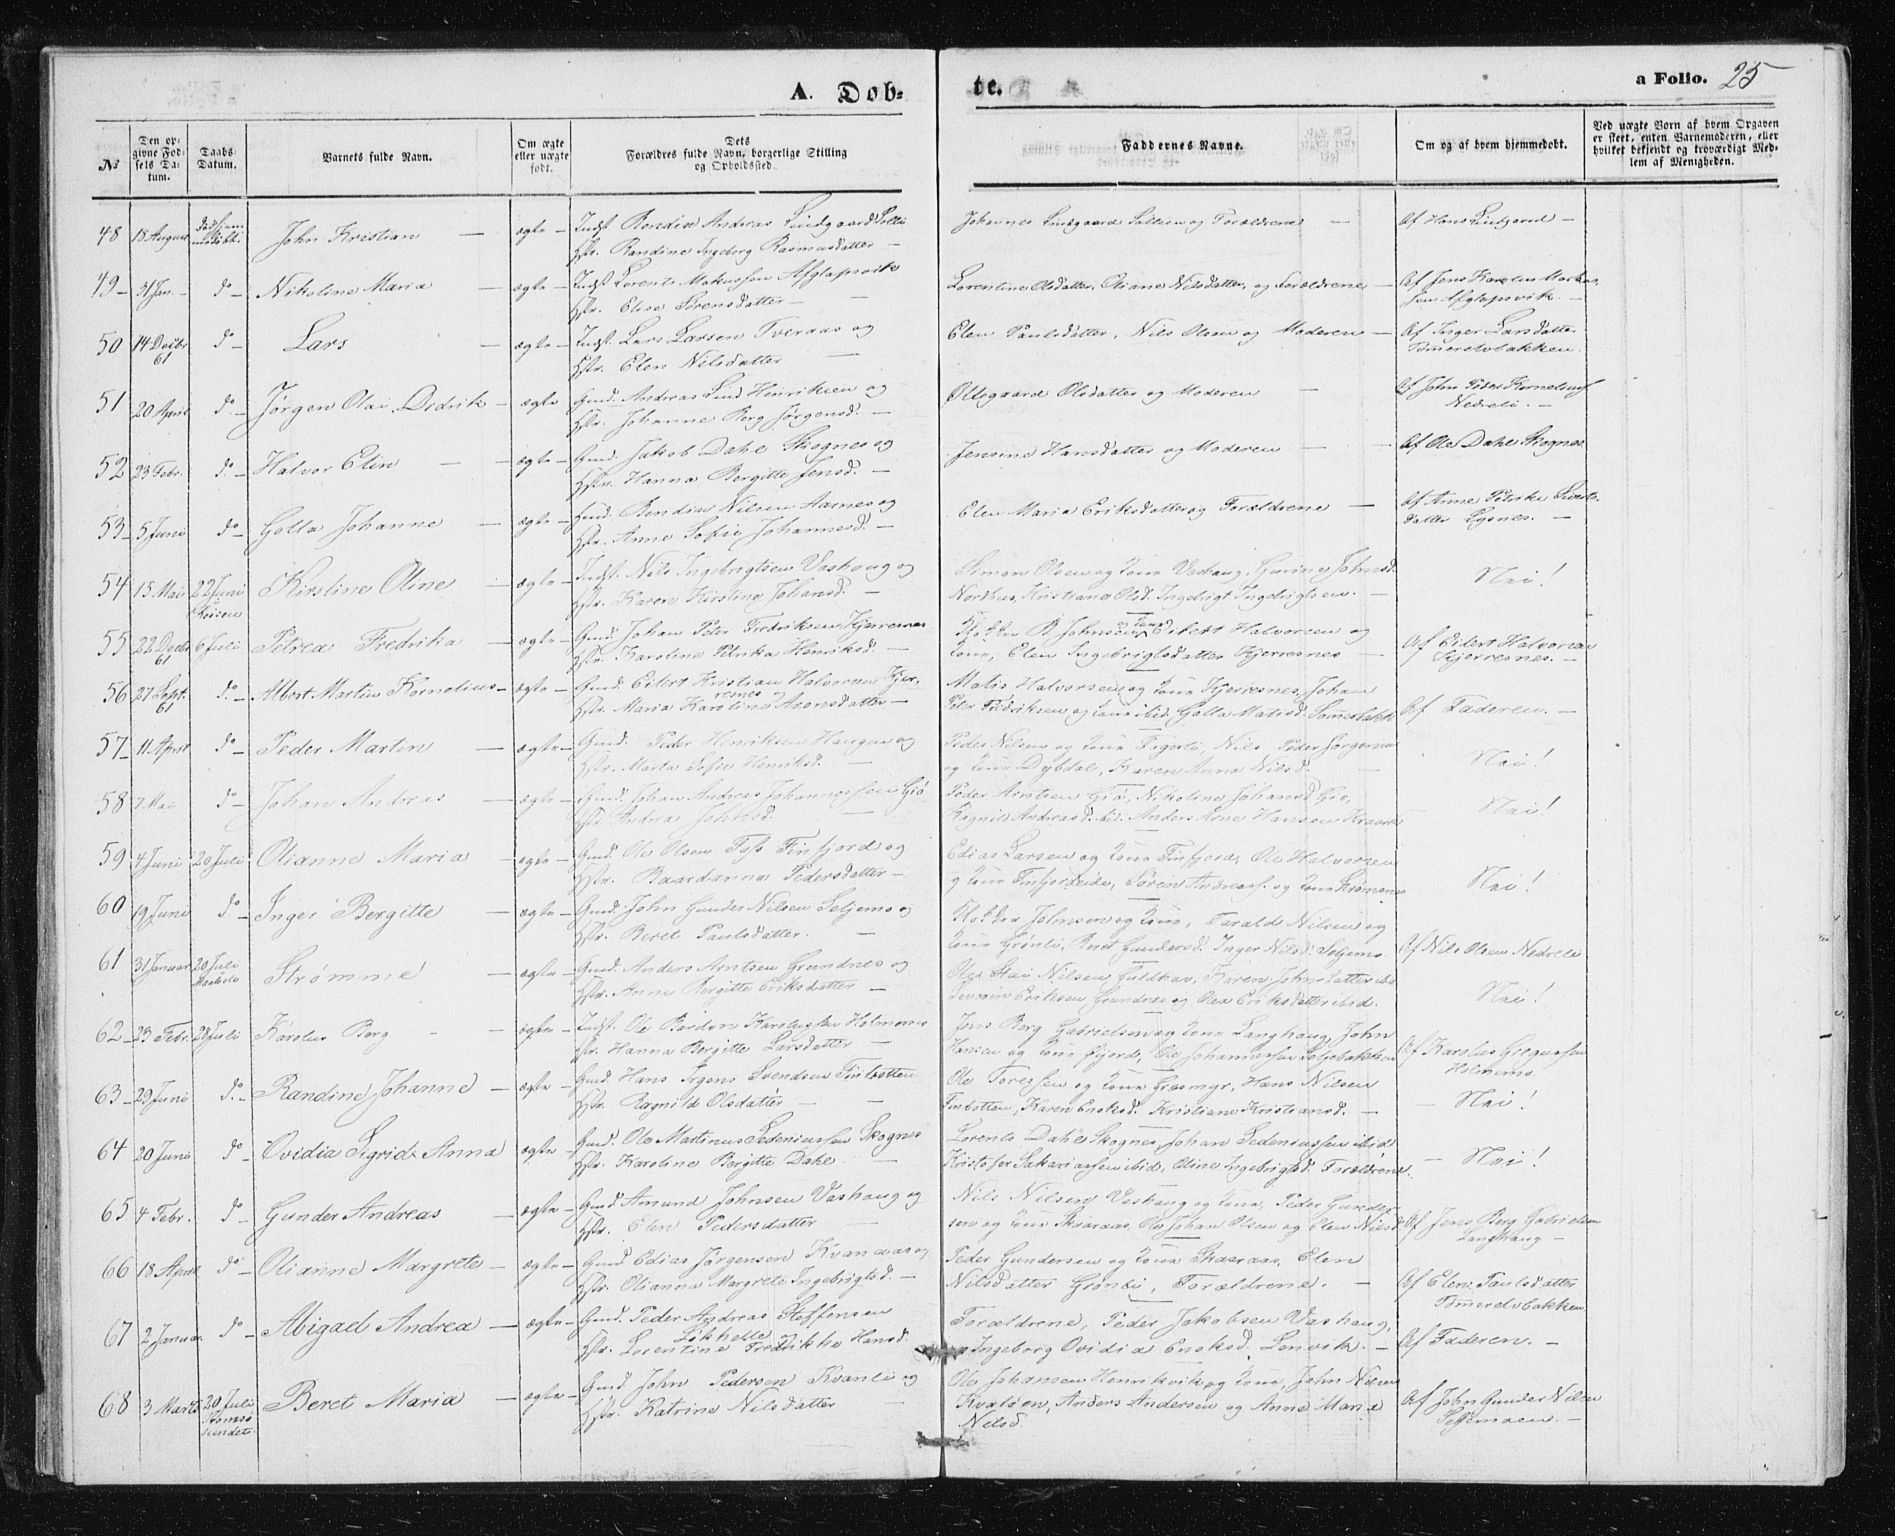 A. Døb=
te.
a Folio. 25
№
Den op=
givne Fød=
sels Da=
tum.
Daabs
Datum.
Barnets fulde Navn.
Om ægte
eller uægte
født.
Dets
Forældres fulde Navn, borgerlige Stilling
og Opholdssted.
Faddernes Navne.
Om og af hvem hjemmedøbt.
Ved uægte Børn af hvem Opgaven
er skeet, enten Barnemoderen, eller
hvilket bekjendt og troværdigt Med=
lem af Menigheden.
48 18 August John Kristian — ægte — Indst Bendix Andreas Lindgaard
Hstr. Randine Ingeborg Rasmusdatter —
Johannes Lindgaard og Forældrene — Af Hans Lindgaard —
49 — 31 Jan. — do — Nikoline Maria — ægte — Indst Lorents Afglapsvik
Hstr. Elise Sørensdatter —
Lorentine Olsdatter, Oliane Nilsdatter, og Forældrene — Af Jens Karelius
Afglapsvik —
50 14 Decbr 61 do — Lars — ægte — Indst. Lars Larsen Tveraas og
Hstr. Elen Nilsdatter —
Elen Paulsdatter, Nils Olsen og Moderen — Af Inger Larsdatter
Tømmeretsbakken.
51 20 April do — Jørgen Olai Didrik — ægte — Gmd. Andreas Lind Henriksen og
Hstr. Johanne Berg Jørgensd. —
Oldegaard Olsdatter og Moderen — Af John Peder
Nedreli. —
52 23 Febr. do — Halvor Elin — ægte — Gmd. Jakob Dahl Skognes og
Hstr. Hanna Bergitte Jensd. —
Jensine Hansdatter og Moderen — Af Ole Dahl Skognes
53 — 5 Juni do Golla Johanne — ægte — Gmd. Bendix Nilsen Aarnes og
Hstr. Anne Sofie Johannesd. —
Elen Maria Eriksdatter og Forældrene — Af Anne Petrike
datter Lysnes. —
54 15 Mai 22 Juni Kirstine Oline — ægte — Indst. Nils Ingebrigtsen Vashaug og
Hstr. Karen Kirstine Johansd. —
Simon Olsen og Kone Vashaug, Johnsd.
Nordhus, Kristiane Olsd. Ingebrigt Ingebrigtsen. — Nei!
55 22 Decbr 61 6 Juli Petrea Fredrika — ægte — Gmd. Johan Peter Fredriksen Kjerresnes
Hstr. Karoline Petrika Henriksd. —
B. Johnsen og Kone, Eilert Halvorsen og
Kone, Elen Ingebrigtsdatter Kjerresnes — Af Eilert Halvorsen
Kjerresnes. —
56 27 Sept. 61 do — Albert Martin Kornelius — ægte — Gmd. Eilert Kristian Halvorsen Kjer
resnes
Hstr. Maria Karoline Aronsdatter —
Matis Halvorsen og Kone Kjerresnes, Johan
Peter Fredriksen og Kone ibid. Golla Matisd. Af Faderen. —
57 — 11 April do — Peder Martin — ægte — Gmd. Peder Henriksen Haugen og
Hstr. Marta Sofie Henriksd. —
Peder Nilsen og Kone, Nils Peder Jørgensen
og Kone Dybdal, Karen Anna Nilsd. — Nei!
58 7 Mai do — Johan Andreas — ægte — Gmd. Johan Andreas Johannessen Giø
Hstr. Andrea
Peder Arntsen Giø, Nikoline Johansd. Giø,
Andreasd. ibid. Anders Hansen — Nei!
59 4 Juni 20 Juli Olianne Maria — ægte — Gmd. Ole Olsen Foss Finfjord og
Hstr. Baardanna Pedersdatter —
Edias Larsen og Kone Finfjord, Ole Halvorsen
og Kone Finfjordeide, Søren Andreass. og Kone Nei!
60 19 Juni do — Inger Bergitte — ægte — Gmd. John Gunder Nilsen Seljemo og
Hstr. Beret Paulsdatter. —
Johnsen og Kone, Tarald Nilsen og
Kone Grønli, Beret Gundersd. Inger Nilsd. Seljemo Af Nils Olsen Nedreli
61 31 Januar 20 Juli Strømme — ægte — Gmd. Anders Arntsen Grundnes og
Hstr. Anne Bergitte Eriksdatter —
Nilsen Guldhav, Karen Johnsdatter ibid
Severin Eriksen Grundnes og Olea Eriksdatter ibid. Nei!
62 — 23 Febr. 28 Juli Karelus Berg — ægte — Indst. Ole Bardon Karelussen Holmenes
Hstr. Hanna Bergitte Larsdatter —
Jens Berg Gabrielsen og Kone Langhaug, John
Hansen og Kone Øijord, Ole Johannessen Seljebakken Af Karelus Gregussen
Holmenes.
63 — 29 Juni do — Randine Johanne — ægte — Gmd. Hans Irgens Svendsen Finbotten
Hstr. Ragnild Olsdatter —
Ole Toressen og Kone Græsmyr, Hans Nilsen
Finbotten, Karen Enoksd. Kristiane Kristiansd. — Nei!
64 20 Juni do — Ovidia Sigrid Anna — ægte — Gmd. Ole Martinus Sedeniussen Skognes
Hstr. Karoline Bergitte Dahl —
Lorents Dahl Skognes, Johan Sedeniussen ibid
Kristofer Sakariassen ibid, Oline Ingebrigtsd. Forældrene. — Nei!
65 4 Febr. do — Gunder Andreas — ægte — Gmd Amund Johnsen Vashaug og
Hstr. Elen Pedersdatter —
Nils Nilsen Vashaug og Kone, Peder Gunder
sen og Kone Skaaraas, Ole Johan Olsen og Elen Nilsd. Af Jens Berg Gabrielsen
Langhaug —
66 18 April do — Olianne Margrete — ægte — Gmd Edias Jørgensen Kvanaas og
Hstr. Olianna Margrete Ingebrigtsd. —
Peder Gundersen og Kone Skaaraas, Elen
Nilsdatter Grønli, Forældrene. — Af Elen Paulsdatter
Tømmeretsbakken
67 2 Januar do — Abigael Andrea — ægte — Gmd. Peder Andreas Steffensen
Hstr. Lorentine Fredrikke Hansd.
Forældrene, Peder Jakobsen Vashaug,
Ingeborg Ovidia Enoksd. Lenvik. — Af Faderen. —
68 3 Marts 20 Juli Beret Maria — ægte — Gmd John Pedersen Kvanli og
Hstr. Katrine Nilsdatter
Ole Johansen Henrikvik og Kone, John Nilsen
Kvaløen, Anders Andersen og Anne Marie
Nilsd. Af John Gunder Nilsen
Seljemoen. —